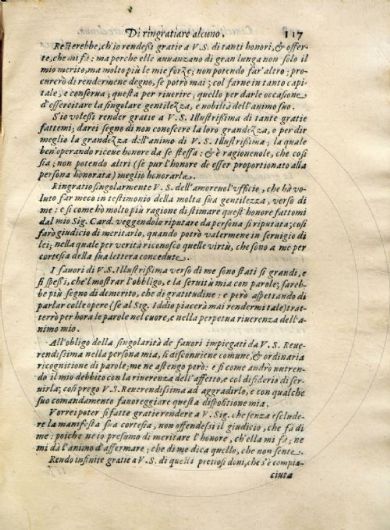 Di ringratiare alcuno. 117
Resterebbe, ch'io rendessi gratie a V. S. di tanti honori, & offer-
te, che mi fà: ma perche elle auuanzano di gran lunga non solo il
mio merito, ma molto più le mie forze; non potendo far' altro; pro-
curerò di rendermene degno, se potrò mai; col farne in tanto capi-
tale, e conserua; questa per riuerire, quello per darle occasione
d'essercitare la singolare gentilezza, e nobiltà dell'animo suo.
S'io volessi render gratie a V. S. Illustrissima di tante gratie
fattemi; darei segno di non conoscere la loro grandezza, o per dir
meglio la grandezza dell'animo di V. S. Illustrissima; la quale
ben'operando riceue honore da se stessa: & è ragioneuole, che così
sia; non potendo altri (se pur l'honore de esser proportionato alla
persona honorata) meglio honorarla.
Ringratio singolarmente V. S. dell'amoreuol'ufficio, che hà vo-
luto far meco in testimonio della molta sua gentilezza, verso di
me: e sì come hò molto più ragione di stimare quest'honore fattomi
dal mio Sig. Card. veggendolo riputare da persona sì riputata; così
farò giudicio di meritarlo, quando potrò valermene in seruigio di
lei; nella quale per verità riconosco quelle virtù, che sono a me per
cortesia della sua lettera concedute.
I fauori di V. S. Illustrissima verso di me sono stati sì grandi, e
sì spessi, che'l mostrar l'obbligo, e la seruitù mia con parole; sareb-
be più segno di demerito, che di gratitudine: e però aspettando di
parlar coll'opere (se al Sig. Iddio piacerà mai rendermi tale) trat-
terrò per hora le parole nel cuore, e nella perpetua riuerenza dell'a-
nimo mio.
All'obligo della singolarità de fauori impiegati da V. S. Reue-
rendissima nella persona mia, si disconuiene comune, & ordinaria
ricognitione di parole; me ne astengo però: e sì come andrò nutren-
do il mio debbito con la riuerenza dell'affetto, e col disiderio di ser-
uirla; così prego V. S. Reuerendissima ad aggradirlo, e con qualche
suo comandamento fauoreggiare questa dispositione mia.
Vorrei poter sì fatte gratie rendere a V. Sig. che senza escludere
la manifesta sua cortesia, non offendessi il giudicio, che fà di
me: poiche ne io presumo di meritare l'honore, ch'ella mi fà; ne
mi dà l'animo d'affermare, che di me dica quello, che non sente.
Rendo infinite gratie a V. S. di quelli pietosi doni, che s'è compia-
ciuta